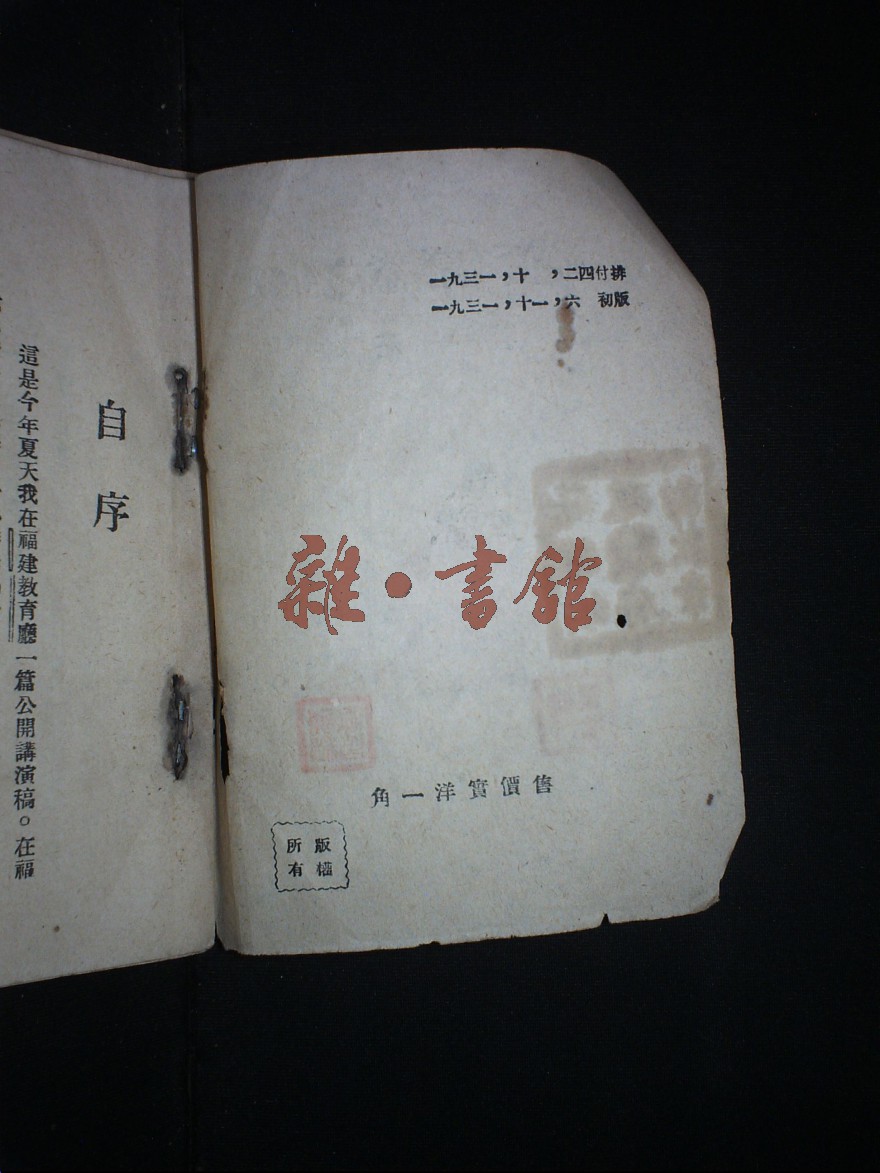 一九三一，十　，二四付排
一九三一，十一，六　初版
雜·書館
售價實洋一角
版權
所有
自序
這是今年夏天我在福建教育廳一篇公開講演稿。在福